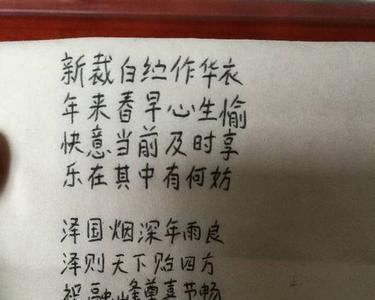 新裁白纻作华衣
年来春早心生愉
快意当前及时享
乐在其中有何妨
泽国烟深年雨良
泽则天下贻四方
祝融峰奠喜节畅